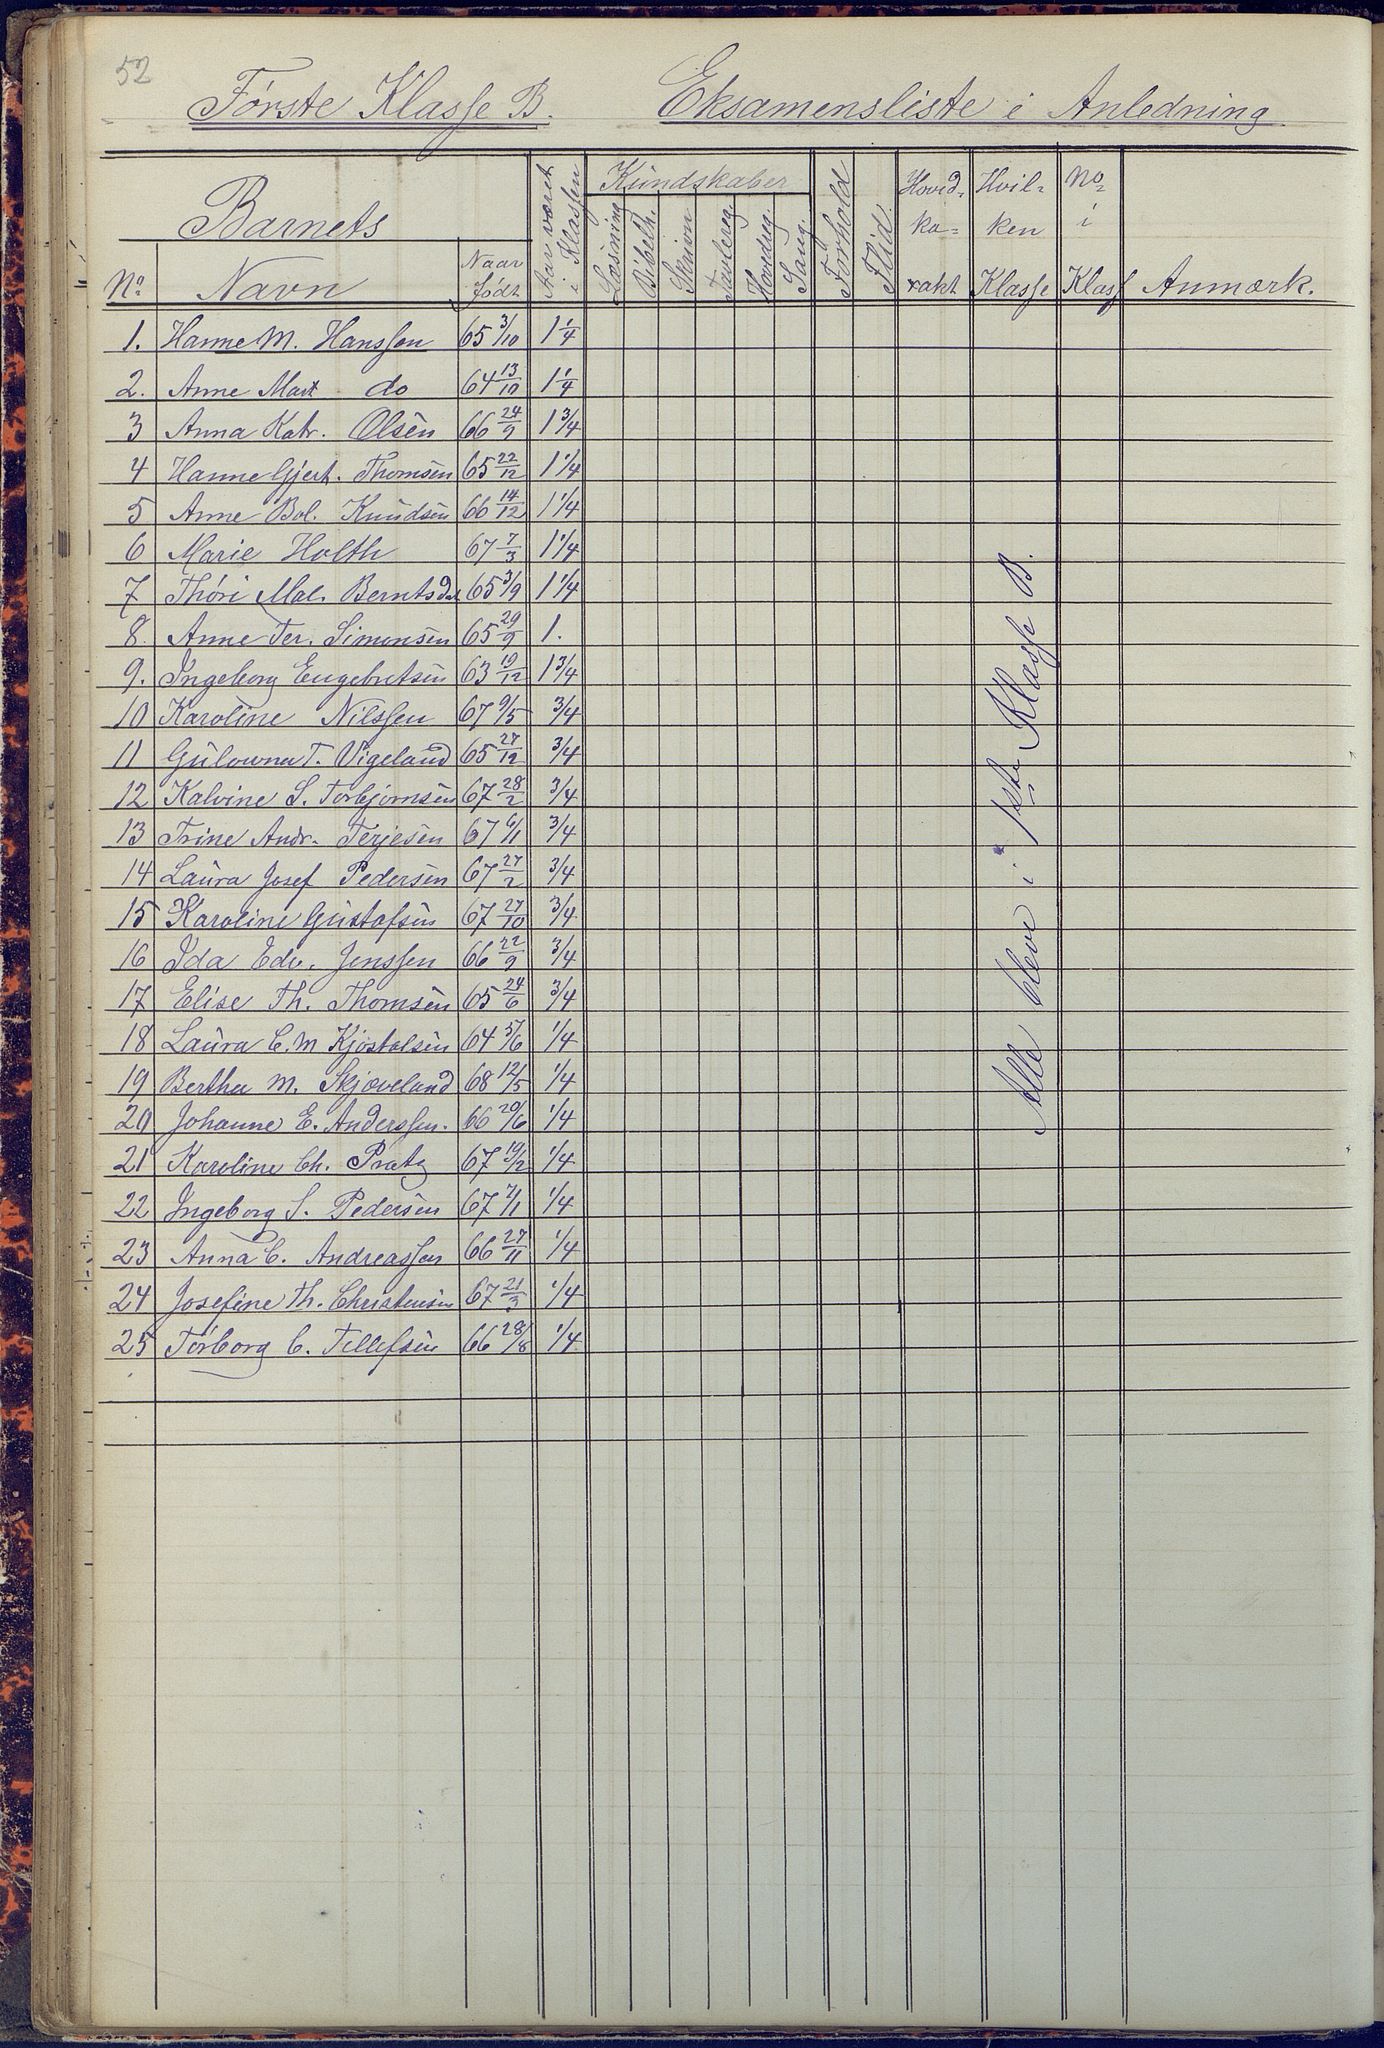 52
Første Klasse B. Eksamensliste i Anledning
Barnets
No Navn Naar født Aar været i Klassen Kundskaber Læsning Bibelh. Skrivn Tavlereg. Hovedreg. Sang. Forhold Flid. Hovedkarakt Hvilken Klasse No i Klass Anmærk.
1. Hanne M. Hanssen 65 3/10 1 1/4
2. Anne Mart do 64 13/10 1 1/4
3 Anna Katr. Olsen 66 24/9 1 3/4
4 Hanne Gjert. Thomsen 65 22/12 1 1/4
5 Anne Bol. Knudsen 66 14/12 1 1/4
6 Marie Holth 67 7/3 1 1/4
7 Thôri Mal. Berntsdat 65 3/9 1 1/4
8. Anne Ter. Simonsen 65 29/9 1.
9. Ingeborg Engebretsen 63 19/12 1 3/4
10 Karoline Nilssen 67 9/5 3/4
11 T. Vigeland 65 27/12 3/4
12 Kalvine S. Torbjørnsen 67 28/2 3/4
13 Trine Andr. Terjesen 67 6/11 3/4
14 Laura Josef Pedersen 67 27/2 3/4
15 Karoline Gustafsen 67 27/10 3/4
16 Ida Edv. Jenssen 66 22/9 3/4
17 Elise Th. Thomsen 65 24/6 3/4
18 Laura C. M 64 1/4
19 Bertha M. Skjæveland 68 12/5 1/4
20 Johanne E. Anderssen. 66 20/6 1/4
21 Karoline Ch. Pratz 67 19/2 1/4
22 Ingeborg S. Pedersen 67 7/1 1/4
23 Anna C. Andreassen 66 27/11 1/4
24 Josefine Th. Christensen 67 21/3 1/4
25 Torborg C. Tellefsen 66 28/8 1/4
Alle bleve i 1ste Klasse B.